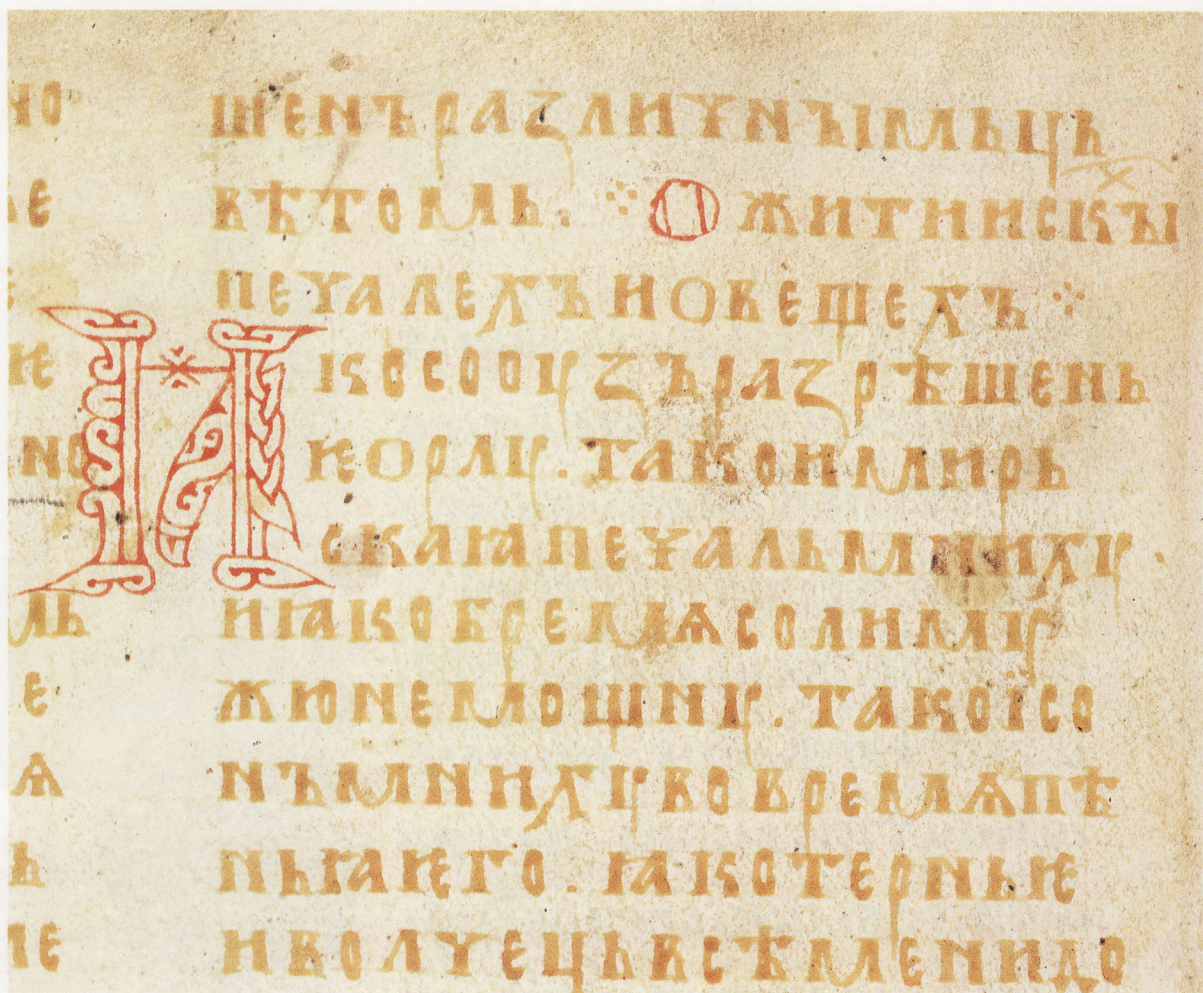 но
ѥ
но
мь
е
ѧ
ь
шенъразличнъıмьць
вѣтомь. ⁘ О житиискъı
печалехъиовещехъ ⁘
Ꙗкосооузъразрѣшень
ѥорлу. такоимирь
скаꙗпечальмниху.
иꙗкобремѧсолиму
жюнемощну. такоїсо
нъмнихувовремѧпѣ
ньꙗѥго. ꙗкотерньѥ
иволчецьвсѣменидо